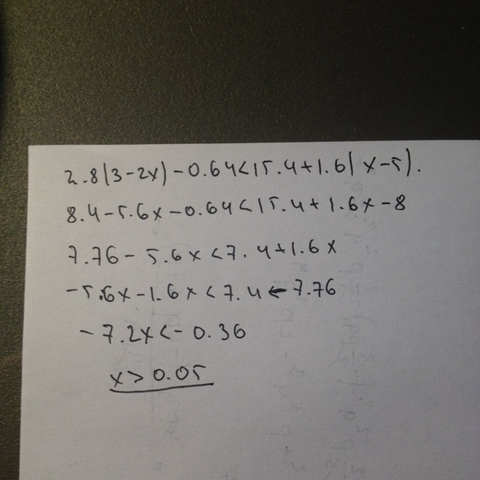 2.8(3-2x)-0.64<15.4+1.6(x-5).
8.4-5.6x-0.64<15.4+1.6x-8
7.76-5.6x<7.4+1.6x
-5.6x-1.6x<7.4-7.76
-7.2x<-0.36
x>0.05